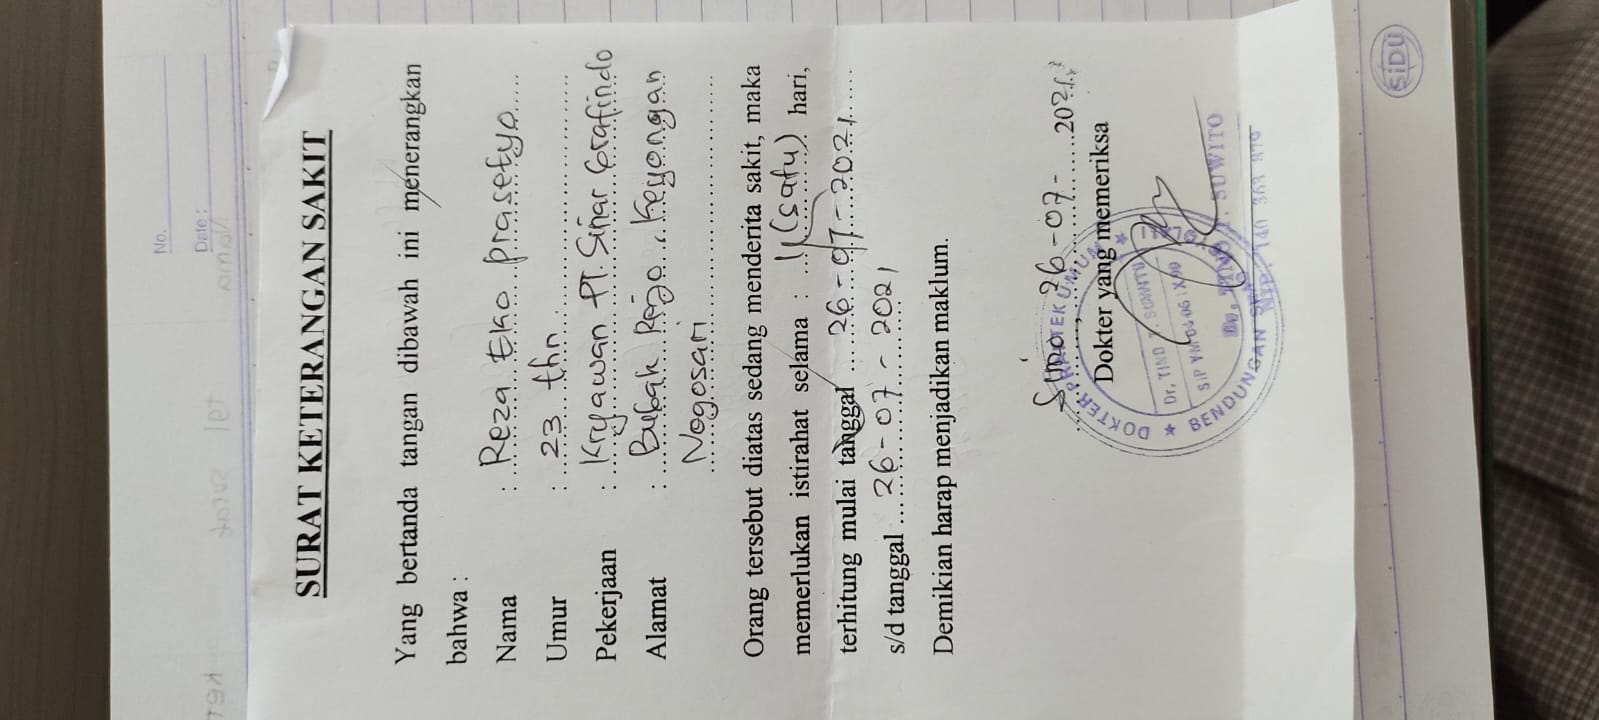 No.
Date :
SURAT KETERANGAN SAKIT
Yang bertanda tangan dibawah ini menerangkan
bahwa :
Nama : Reza Eko Prasetyo
Umur : 23 thn
Pekerjaan : Kryawan PT. Sinar Grafindo
Alamat : Bubak Rejo, Keyongan
Nogosari
Orang tersebut diatas sedang menderita sakit, maka
memerlukan istirahat selama : 1 (satu) hari,
terhitung mulai tanggal 26-07-2021
s/d tanggal 26-07-2021
Demikian harap menjadikan maklum.
Simo, 26-07-2021
Dokter yang memeriksa
DOKTER PRAKTEK UMUM
BENDUNGAN
SUWITO
SiDU